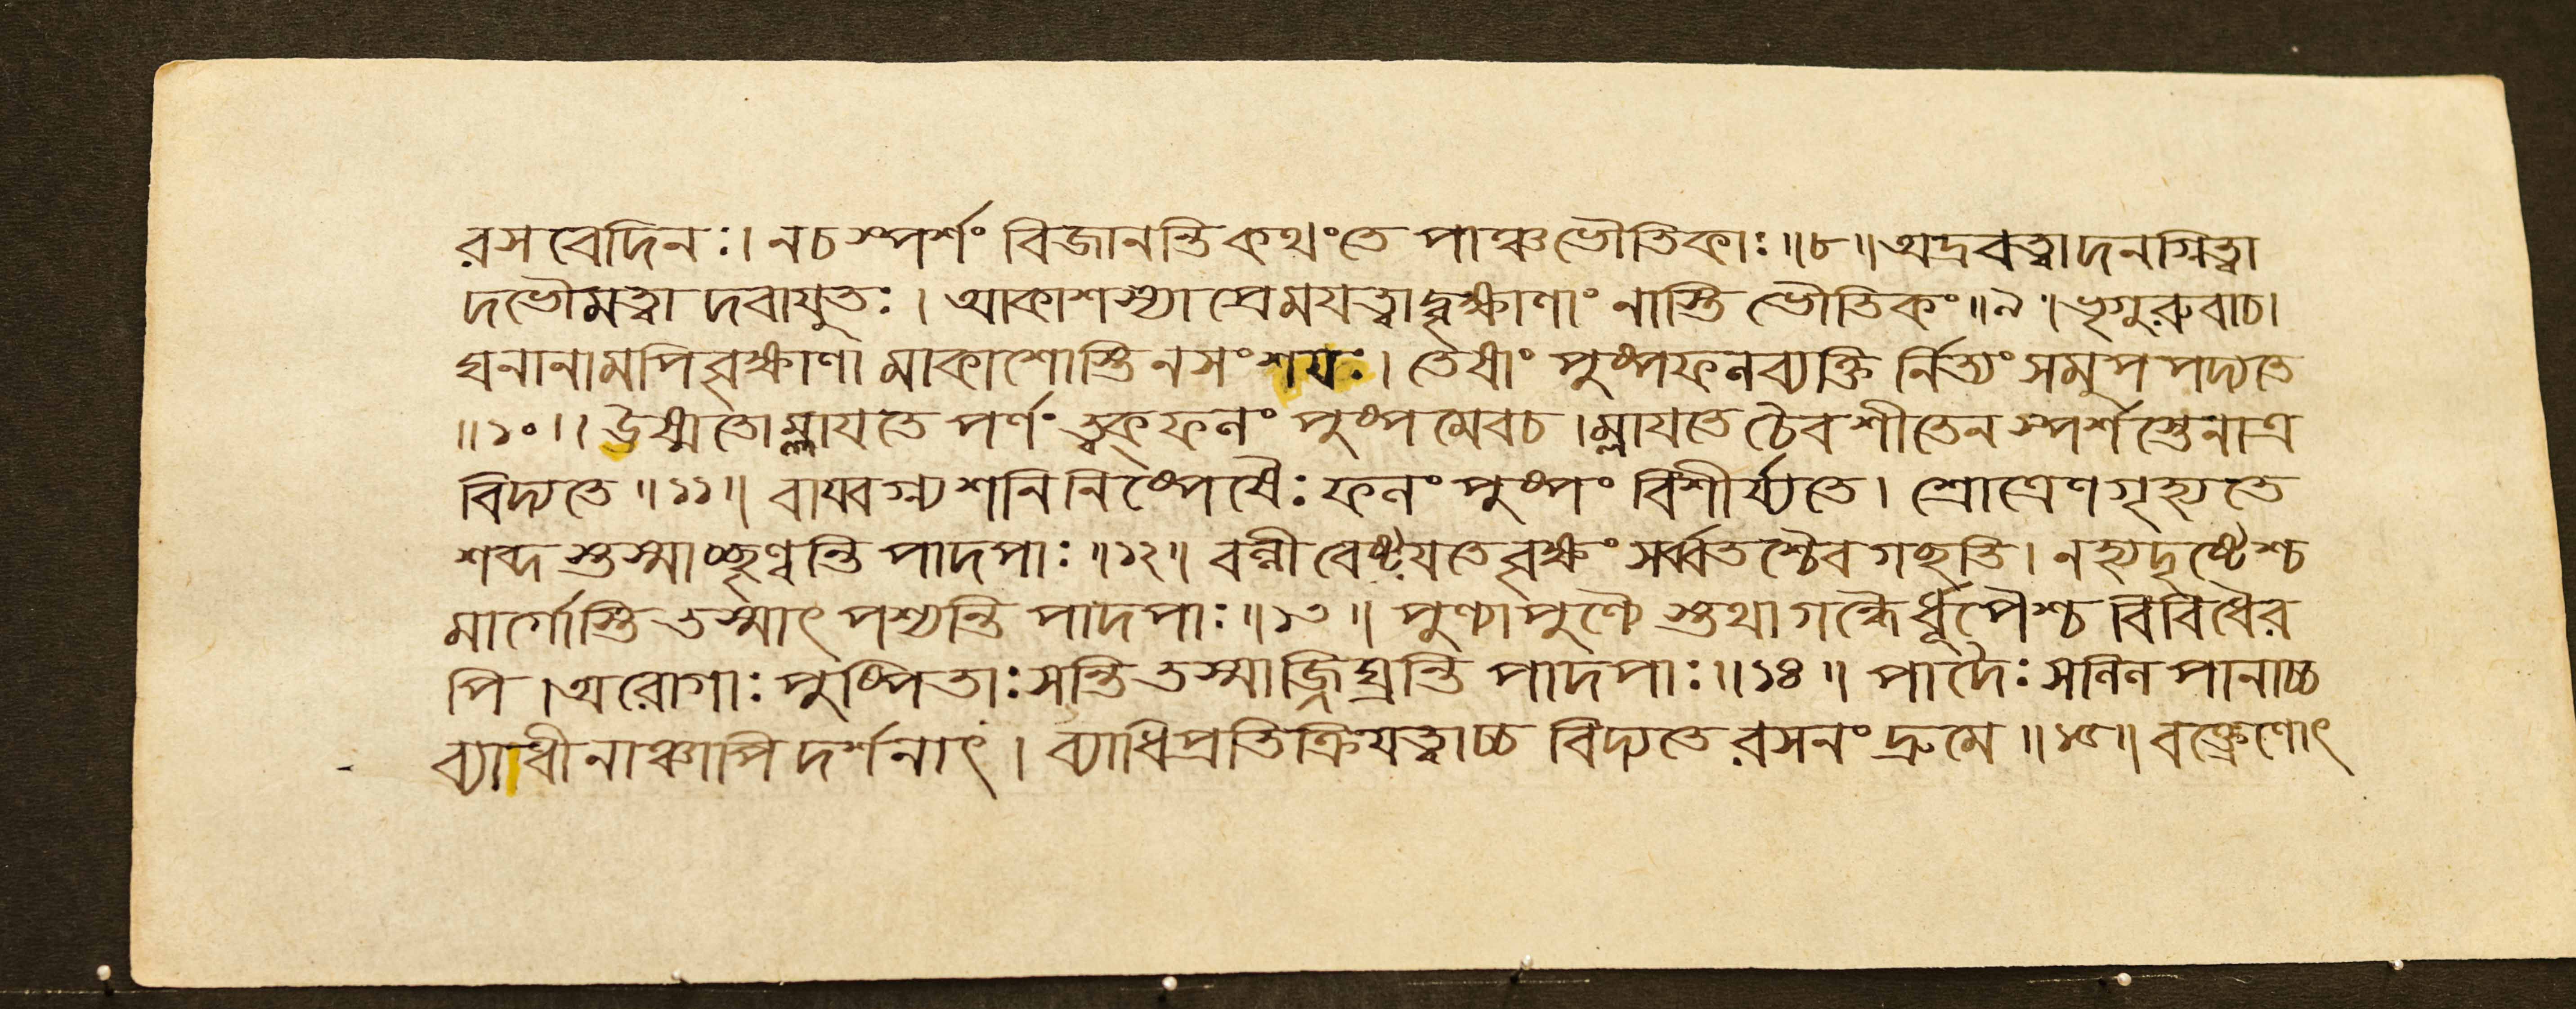 রসবেদিনঃ। নচ স্পর্শং বিজানন্তি কথংতে পাঞ্চভৌতিকাঃ॥৮॥ অদ্রবত্বাদনগ্নিত্বা
দভৌমত্বা দবাযুতঃ। আকাশস্যা প্রেমযত্বাদ্বৃক্ষাণাং নাস্তি ভৌতিকং॥৯। ভৃগুরুবাচ।
ঘনানামপিবৃক্ষাণা মাকাশোস্তি নসংশযঃ। তেষাং পুষ্পফলব্যক্তি র্নিত্যং সমুপপদ্যতে
॥১০॥ ঊষ্মতোম্লাযতে পর্ণং ত্বক্ ফলং পুষ্পমেবচ। ম্লাযতে চৈবশীতেন স্পর্শস্তেনাত্র
বিদ্যতে॥১১॥ বায্বগ্ন্যশনিনিষ্পেষৈঃ ফলং পুষ্পং বিশীর্য্যতে। শ্রোত্রেণগৃহ্যতে
শব্দ স্তস্মাচ্ছৃণ্বন্তি পাদপাঃ॥১২॥ বল্লী বেষ্টযতে বৃক্ষং সর্ব্বতশ্চৈব গচ্ছতি। নহ্যদৃষ্টেশ্চ
মার্গোস্তি তস্মাৎ পশ্যন্তি পাদপাঃ॥১৩॥ পুণ্যাপুণ্যৈ স্তথা গন্ধৈর্ধূপৈশ্চ বিবিধৈর
পি। অরোগাঃ পুষ্পিতাঃ সন্তি তস্মাজ্জিঘ্রন্তি পাদপাঃ॥১৪॥ পাদৈঃ সলিল পানাচ্চ
ব্যাধীনাঞ্চাপি দর্শনাৎ। ব্যাধিপ্রতিক্রিযত্বাচ্চ বিদ্যতে রসনং দ্রুমে॥১৫॥ বক্ত্রেণোৎ